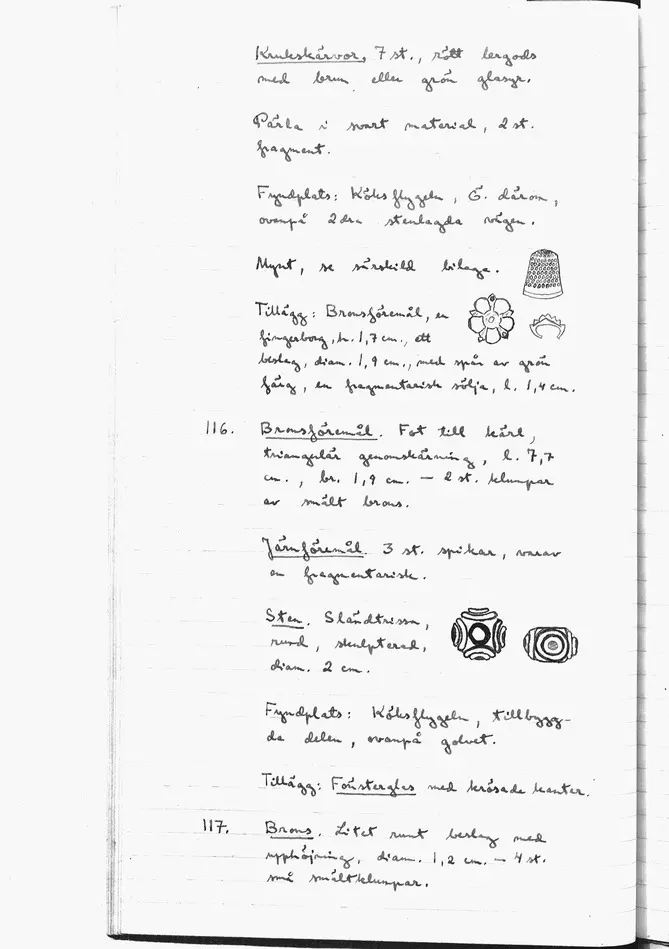 Krukskärvor, 7 st., rött lergods
med brun eller grön glasyr.
Pärla i svart material, 2 st.
fragment.
Fyndplats: Köksflygeln, Ö. därom,
ovanpå 2dra stenlagda vägen.
Mynt, se särskild bilaga.
Tillägg: Bronsföremål, en
fingerborg, h. 1,7 cm., ett
beslag, diam. 1,9 cm., med spår av grön
färg, en fragmentarisk sölja, l. 1,4 cm.
116. Bronsföremål. Fot till kärl,
triangulär genomskärning, l. 7,7
cm., br. 1,9 cm. — 2 st. klumpar
av smält brons.
Järnföremål. 3 st. spikar, varav
en fragmentarisk.
Sten. Sländtrissa,
rund, skulpterad,
diam. 2 cm.
Fyndplats: Köksflygeln, tillbygg-
da delen, ovanpå golvet.
Tillägg: Fönsterglas med krösade kanter.
117. Brons. Litet runt beslag med
upphöjning, diam. 1,2 cm. — 4 st.
små smältklumpar.